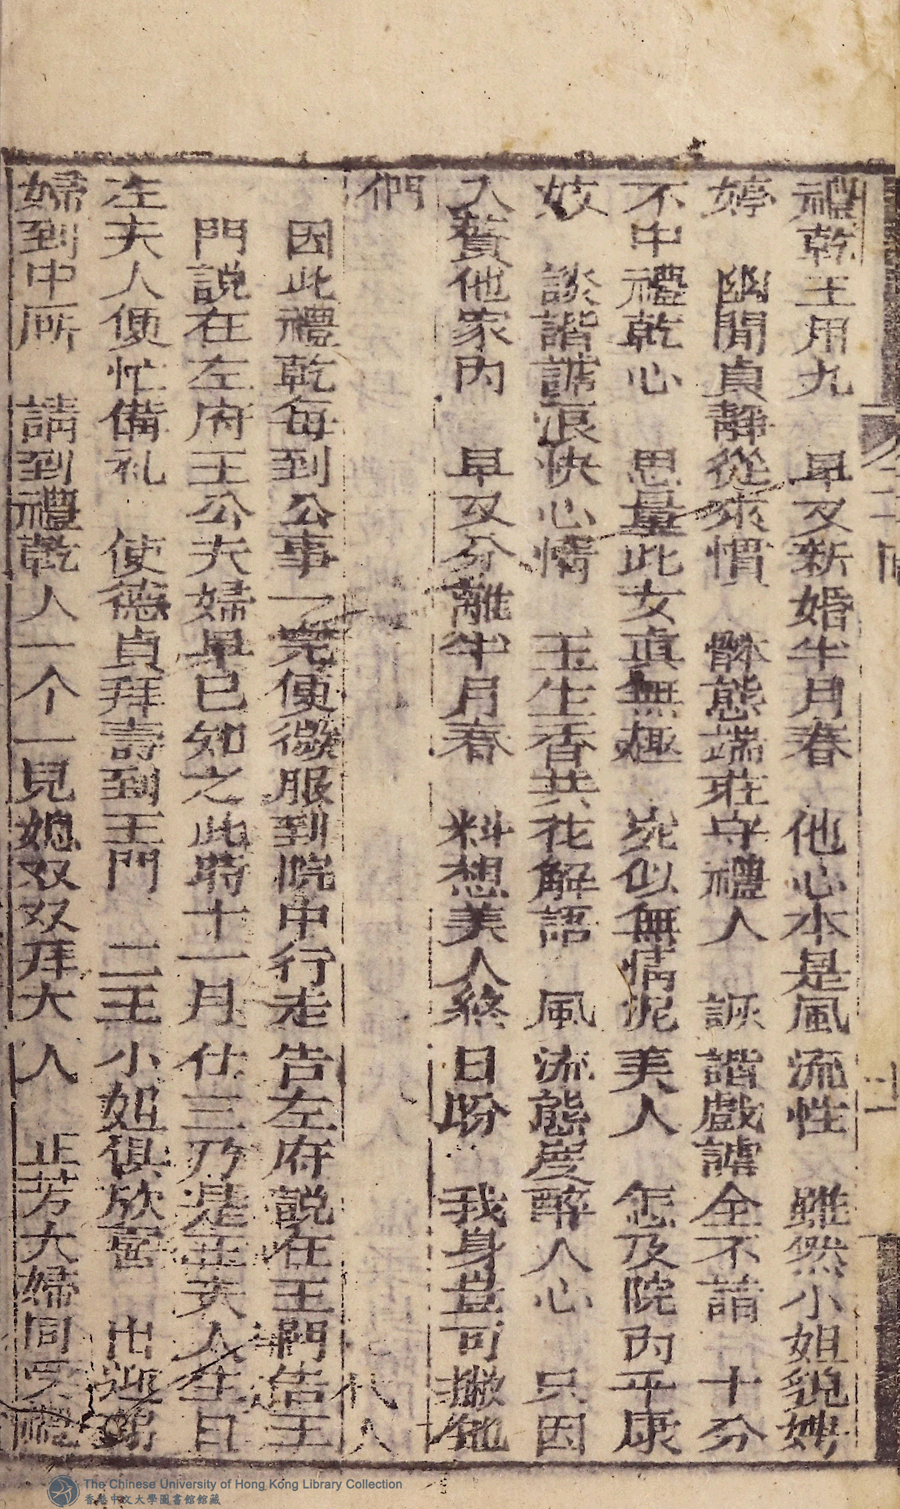 禮乾王用九　早及新婚半月春　他心本是風流性　雖然小姐貌娉
婷　幽閒貞靜從來慣　躰態端莊守禮人　詼諧戲謔全不諳　十分
不中禮乾心　思量此女真無趣　宛似無情泥美人　怎及院內平康
妓　談諧謔浪快心情　玉生香共花解語　風流態度醉人心　只因
入贅他家內　早及分離半月春　料想美人終日盼　我身豈可撇他
們　代人
因此禮乾每到公事一完便微服到院中行走告左府說在王門告王
門說在左府王公夫婦早已知之此時十一月廿三乃是王夫人生日
左夫人便忙備礼　使德貞拜壽到王門　二王小姐俱欣喜　出迎
婦到中所　請到禮乾人一个　一見媳双双拜大人　正芳大婦同受禮
The Chinese University of Hong Kong Library Collection
香港中文大學圖書館館藏